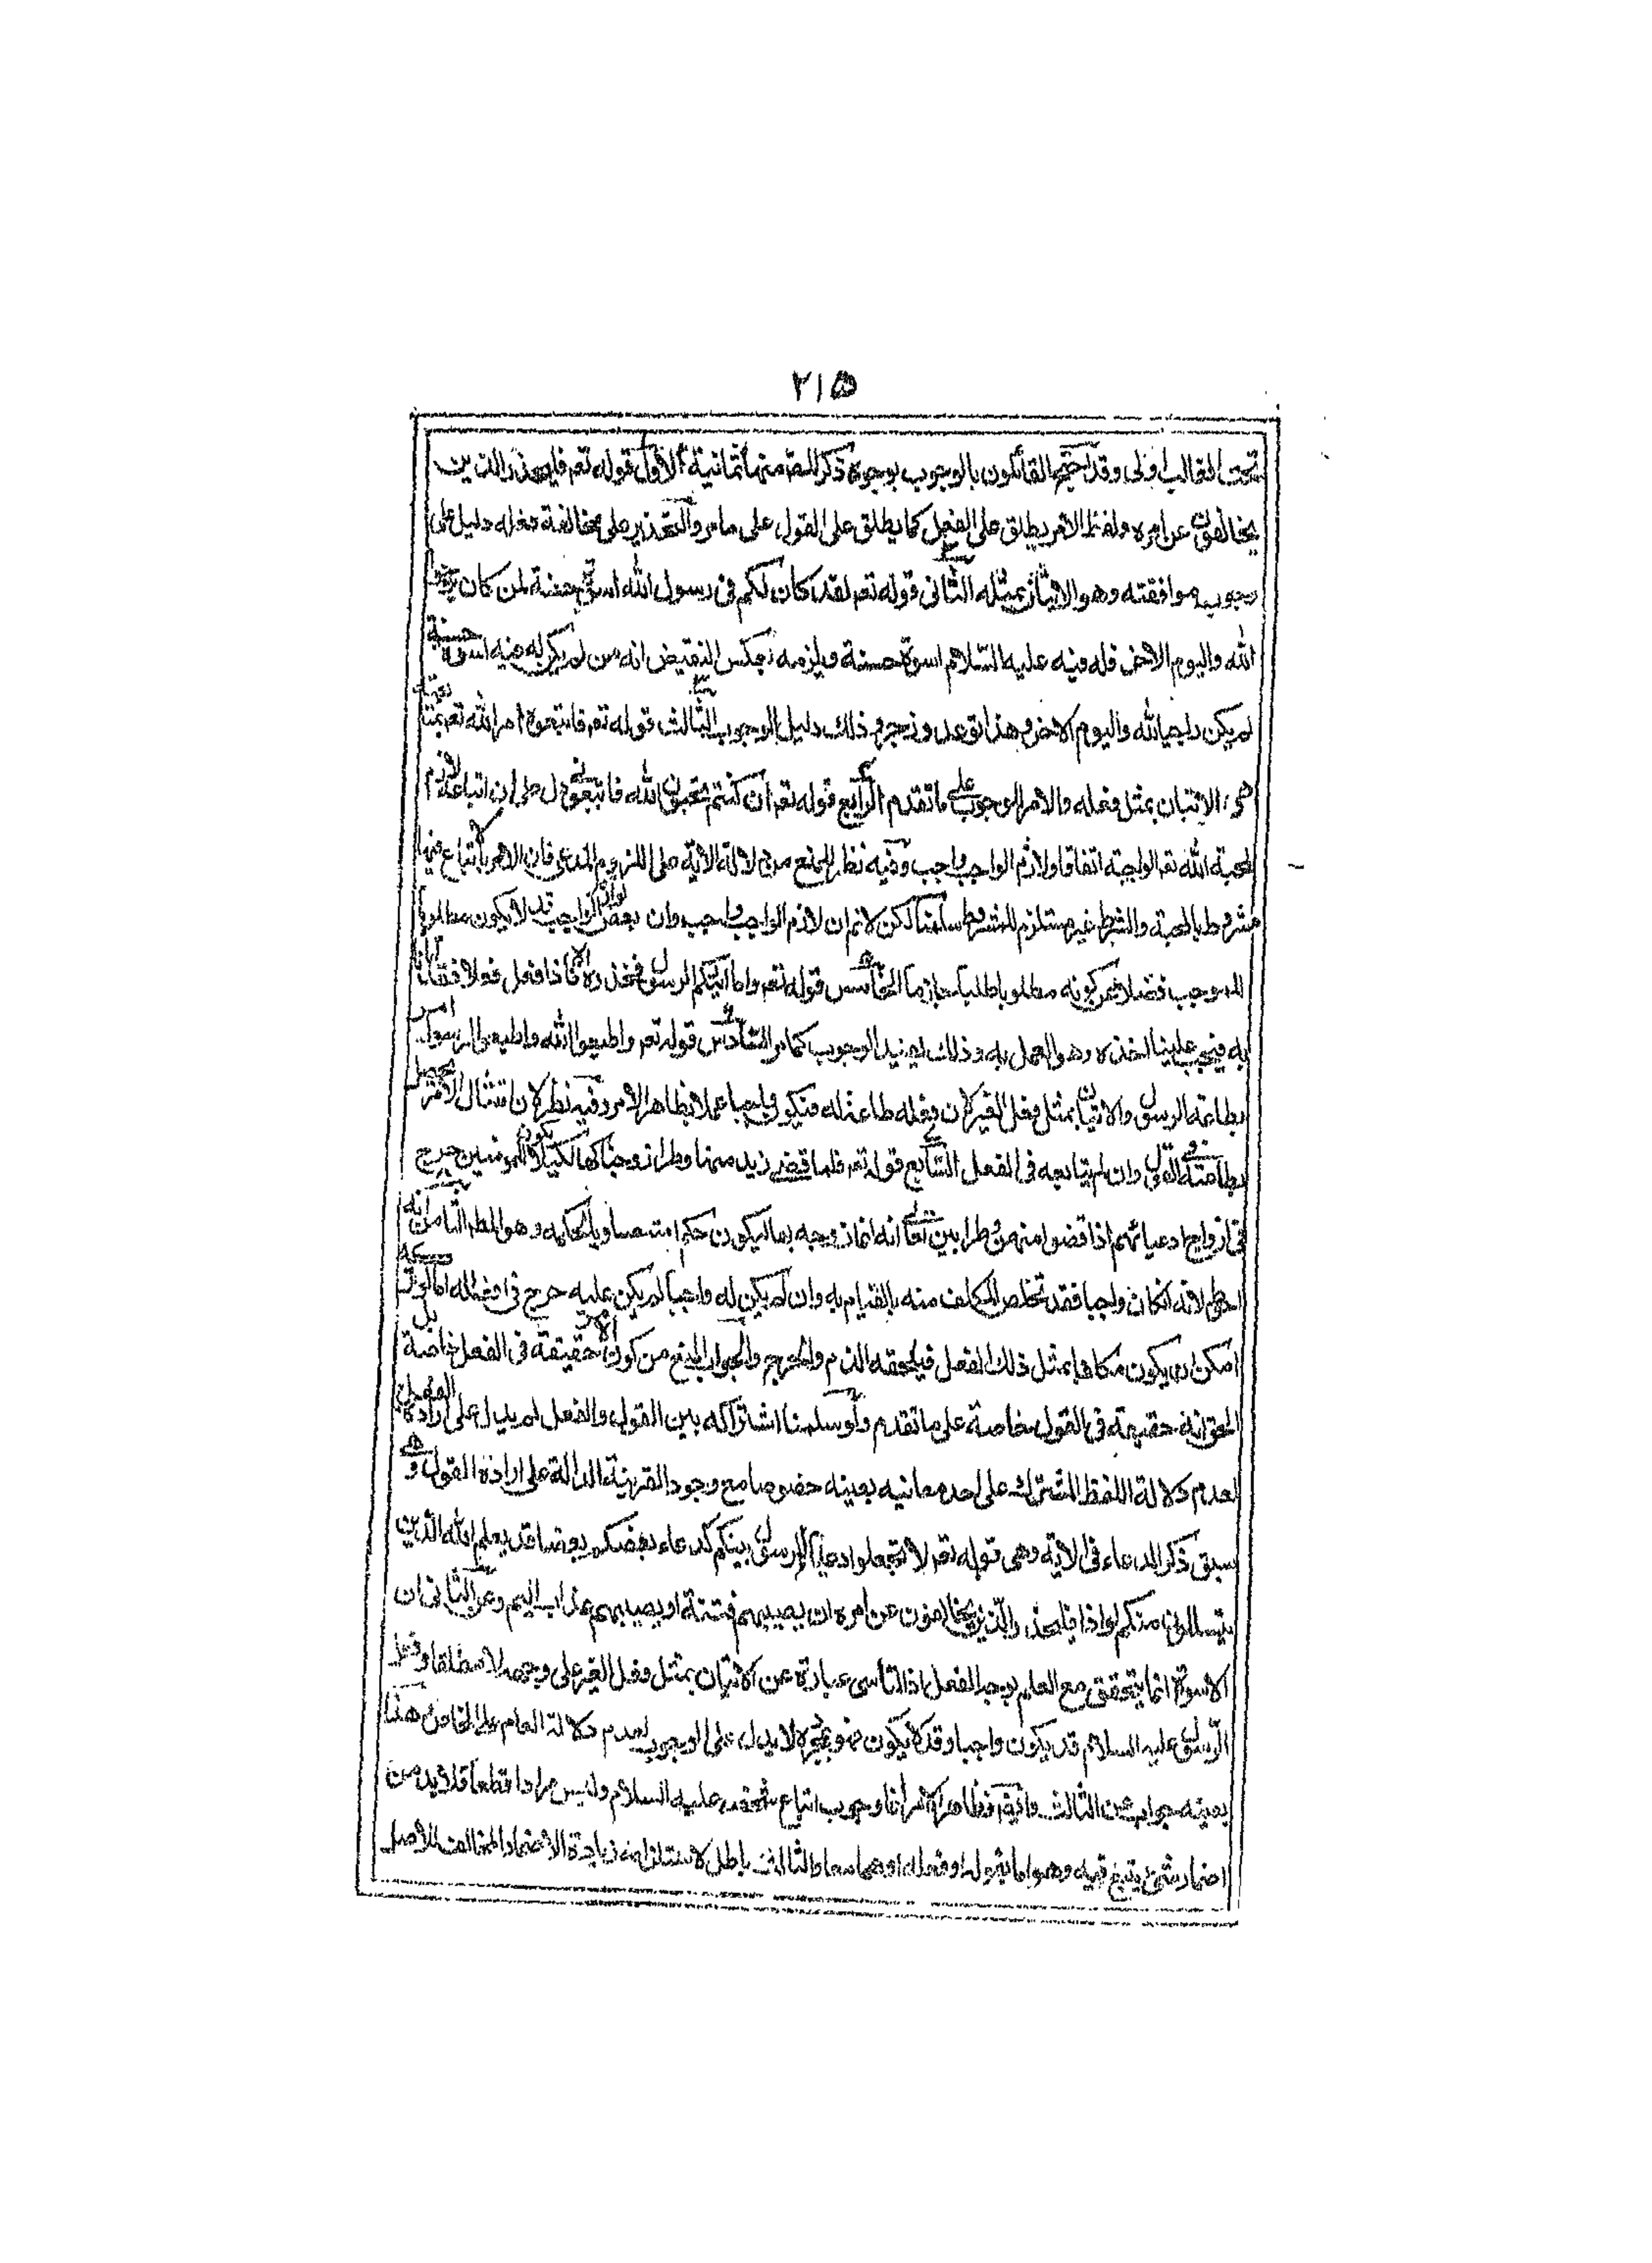 ٢١٥
وقد احتج القائلون بالوجوب بوجوه ذكر المصّ منها ثمانية الاول قوله تعـ فليحذر الذين
يخالفون عن امره ولفظ الامر يطلق على الفعل كما يطلق على القول على ما مر والتحذير على مخالفة فعله دليل على
وجوب موافقته وهو الاتيان بمثله الثانى قوله تعـ لقد كان لكم فى رسول الله اسوة حسنة لمن كان يرجوا
الله واليوم الاخر فله فيه عليه السّلام اسوة حسنة ويلزمه بعكس النقيض انه من لم يكن له فيه اسوة حسنة
لم يكن راجيا لله واليوم الاخر وهذا توعد وزجر وذلك دليل الوجوب الثالث قوله تعـ فاتبعوه امر الله تعـ بمتابعته
هى الاتيان بمثل فعله والامر للوجوب على ما تقدم الرابع قوله تعـ ان كنتم تحبون الله فاتبعونى دل على ان اتباعه لازم
لمحبة الله تعـ الواجبة اتفاقا ولازم الواجب واجب وفيه نظر للمنع من دلالة الاية على اللزوم المدعى فان الامر بالاتباع فيها
مشروط بالمحبة والشرط غير مستلزم للمشروط سلمنا لكن لا نم ان لازم الواجب واجب وان بعض لوازم الواجب قد لا يكون مطلوبا
للموجب فضلا عن كونه مطلوبا طلبا جازما الخامس قوله تعـ وما اتيكم الرسول فخذوه فاذا فعل فعلا فقد اتانا
به فيجب علينا اخذه وهو العمل به وذلك يفيد الوجوب كما مر السّادس قوله تعـ واطيعوا الله واطيعوا الرسول امر
بطاعة الرسول والاتيان بمثل فعل الغير لان فعله طاعة له فيكون واجبا عملا بظاهر الامر وفيه نظر لان امتثال الامر يحصل
بطاعته فى القول وان لم يتابعه فى الفعل السّابع قوله تعـ فلما قضى زيد منها وطرا زوجناكها لكيلا يكون على المؤمنين حرج
فى ازواج ادعيائهم اذا قضوا منهن وطرا بين تعالى انه انما زوجه بها ليكون حكم امته مساويا لحكمه وهو المطـ الثامن انه
احوط لانه ان كان واجبا فقد تخلص المكلف منه بالقيام به وان لم يكن له واجبا لم يكن عليه حرج فى افعاله اما لو تركه
امكن ان يكون مكلفا بمثل ذلك الفعل فيلحقه الذم والحرج والجواب المنع من كون الامر حقيقة فى الفعل خاصة بل
الحق انه حقيقة فى القول خاصة على ما تقدم ولو سلمنا اشتراكه بين القول والفعل لم يدل على ارادة الفعل
لعدم دلالة اللفظ المشترك على احد معانيه بعينه خصوصا مع وجود القرينة الدالة على ارادة القول وهى
سبق ذكر الدعاء فى الاية وهى قوله تعـ لا تجعلوا دعاء الرسول بينكم كدعاء بعضكم بعضا قد يعلم الله الذين
يتسللون منكم لواذا فليحذر الذين يخالفون عن امره ان يصيبهم فتنة او يصيبهم عذاب اليم وعن الثانى ان
الاسوة انما يتحقق مع العلم بوجه الفعل اذ التأسى عبارة عن الاتيان بمثل فعل الغير على وجهه لا مطلقا وفعل
الرّسول عليه السلام قد يكون واجبا وقد لا يكون فهو بمجرده لا يدل على الوجوب لعدم دلالة العام على الخاص وهذا
بعينه جواب عن الثالث وايضا فظاهر الامر انما وجوب اتباع شخصه عليه السلام وليس مرادا قطعا فلا بد من
اضمار شئ يتبع فيه وهو اما قوله او فعله او هما معا والثالث باطل لاستلزامه زيادة الاضمار المخالف للاصل